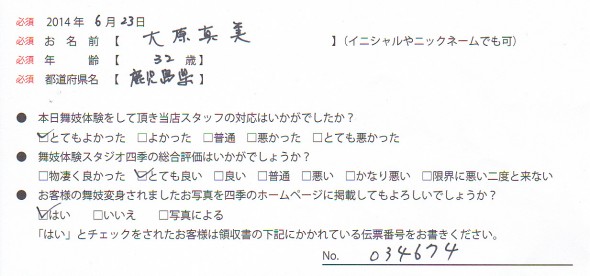 必須 2014年 6月 23日
必須 お名前【 大原真美 】(イニシャルやニックネームでも可)
必須 年齢【 32 歳】
必須 都道府県名【 鹿児島県 】
● 本日舞妓体験をして頂き当店スタッフの対応はいかがでしたか？
☑とてもよかった □よかった □普通 □悪かった □とても悪かった
● 舞妓体験スタジオ四季の総合評価はいかがでしょうか？
□物凄く良かった ☑とても良い □良い □普通 □悪い □かなり悪い □限界に悪い二度と来ない
● お客様の舞妓変身されましたお写真を四季のホームページに掲載してもよろしいでしょうか？
☑はい □いいえ □写真による
「はい」とチェックをされたお客様は領収書の下記にかかれている伝票番号をお書きください。
No. 034674